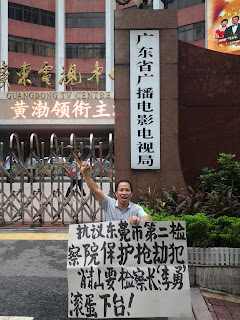 廣東電視中心
GUANGDONG TV CENTRE
黄渤领衔主
广东省广播电影电视局
抗议东莞市第二检
察院保护抢劫犯
"肖山要检察长"李勇"
滚蛋下台！